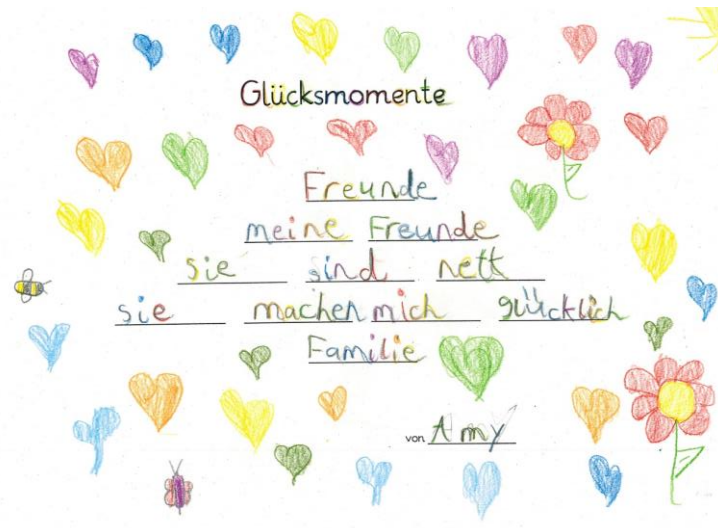 Glücksmomente
Freunde
meine Freunde
sie sind nett
sie machen mich glücklich
Familie
von Amy